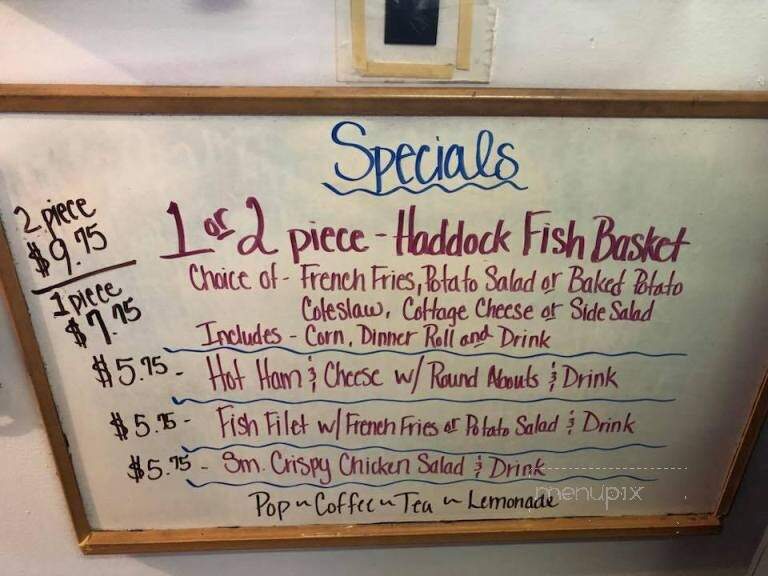 Specials
2 piece
$9.75
1 piece
$7.75
1 or 2 piece - Haddock Fish Basket
Choice of - French Fries, Potato Salad or Baked Potato
Coleslaw, Cottage Cheese or Side Salad
Includes - Corn, Dinner Roll and Drink
$5.75 - Hot Ham & Cheese w/ Round Abouts & Drink
$5.75 - Fish Filet w/ French Fries or Potato Salad & Drink
$5.75 - Sm. Crispy Chicken Salad & Drink
Pop ~ Coffee ~ Tea ~ Lemonade
menupix